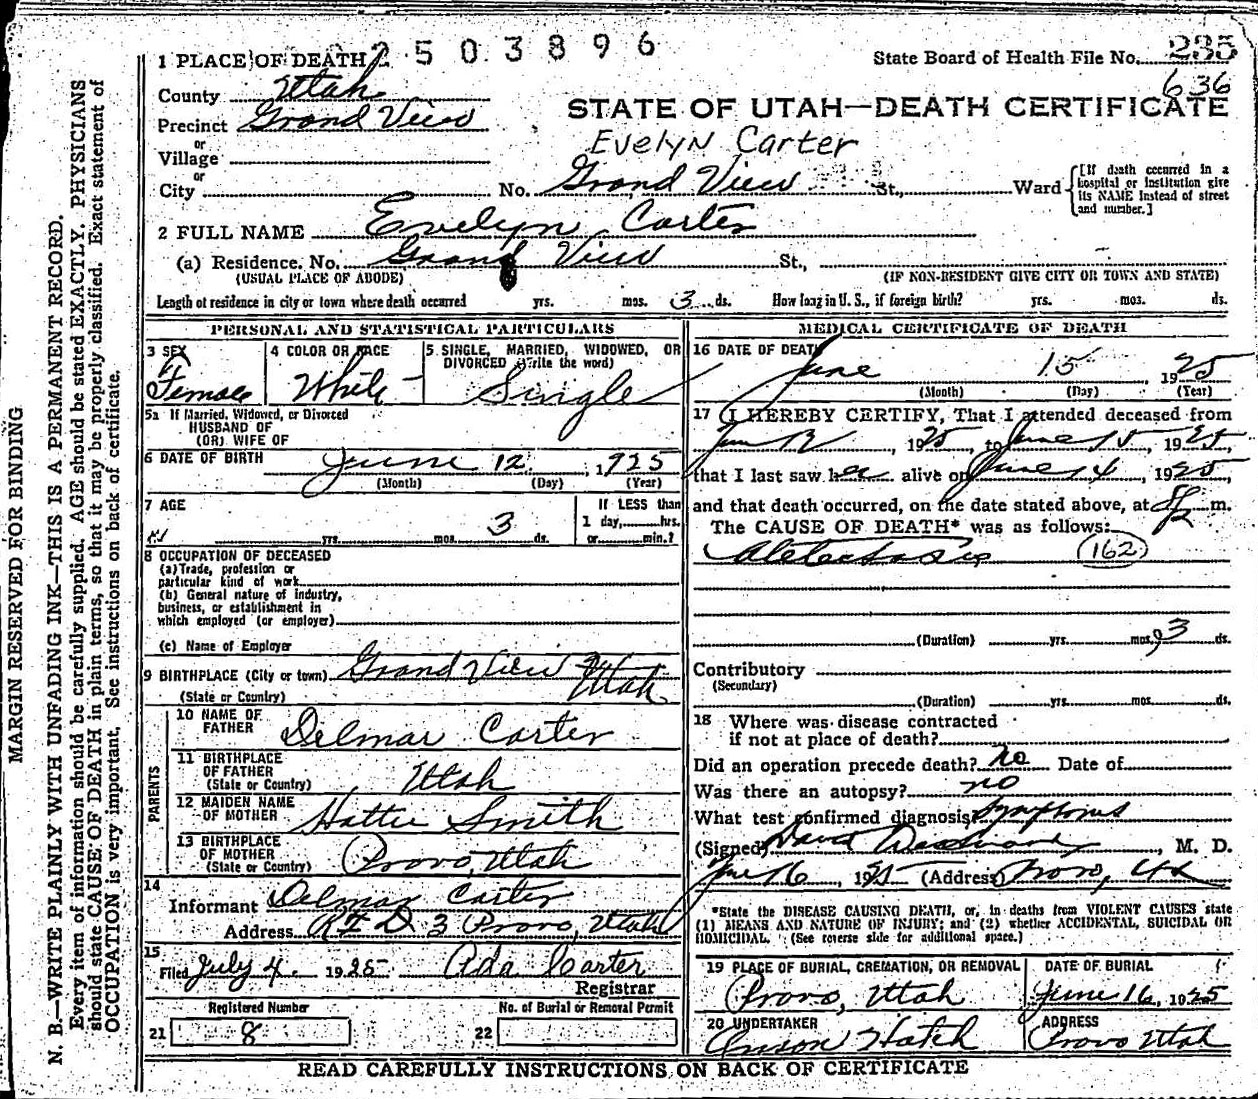 MARGIN RESERVED FOR BINDING
N. B.—WRITE PLAINLY WITH UNFADING INK—THIS IS A PERMANENT RECORD.
Every item of information should be carefully supplied. AGE should be stated EXACTLY. PHYSICIANS
should state CAUSE OF DEATH in plain terms, so that it may be properly classified. Exact statement of
OCCUPATION is very important. See instructions on back of certificate.
2503896
1 PLACE OF DEATH
State Board of Health File No. 235
636
County Utah
STATE OF UTAH—DEATH CERTIFICATE
Precinct Grand View
Evelyn Carter
or
Village
or
City No. Grand View St., Ward
[If death occurred in a
hospital or institution give
its NAME instead of street
and number.]
2 FULL NAME Evelyn Carter
(a) Residence. No. Grand View St.,
(USUAL PLACE OF ABODE) (IF NON-RESIDENT GIVE CITY OR TOWN AND STATE)
Length of residence in city or town where death occurred yrs. mos. 3 ds. How long in U. S., if foreign birth? yrs. mos. ds.
PERSONAL AND STATISTICAL PARTICULARS
3 SEX
Female
4 COLOR OR RACE
White
5 SINGLE, MARRIED, WIDOWED, OR
DIVORCED (Write the word)
Single
5a If Married, Widowed, or Divorced
HUSBAND OF
(OR) WIFE OF
6 DATE OF BIRTH June 12, 1925
(Month) (Day) (Year)
7 AGE
yrs. mos. 3 ds.
If LESS than
1 day, hrs.
or min.?
8 OCCUPATION OF DECEASED
(a) Trade, profession or
particular kind of work
(b) General nature of industry,
business, or establishment in
which employed (or employer)
(c) Name of Employer
9 BIRTHPLACE (City or town) Grand View
(State or Country) Utah
PARENTS
10 NAME OF
FATHER Delmar Carter
11 BIRTHPLACE
OF FATHER
(State or Country) Utah
12 MAIDEN NAME
OF MOTHER Hattie Smith
13 BIRTHPLACE
OF MOTHER
(State or Country) Provo, Utah
14
Informant Delmar Carter
Address R F D 3 Provo, Utah
15
Filed July 4. 1925 Ada Carter
Registrar
Registered Number
21 8
No. of Burial or Removal Permit
22
MEDICAL CERTIFICATE OF DEATH
16 DATE OF DEATH
June 15, 1925
(Month) (Day) (Year)
17 I HEREBY CERTIFY, That I attended deceased from
June 12, 1925, to June 15, 1925,
that I last saw her alive on June 14, 1925,
and that death occurred, on the date stated above, at m.
The CAUSE OF DEATH* was as follows:
Atelectasis (162)
(Duration) yrs. mos. 3 ds.
Contributory
(Secondary)
(Duration) yrs. mos. ds.
18 Where was disease contracted
if not at place of death?
Did an operation precede death? no Date of
Was there an autopsy? no
What test confirmed diagnosis? Symptoms
(Signed) David Westwood, M. D.
June 16, 1925 (Address) Provo, Ut
*State the DISEASE CAUSING DEATH, or, in deaths from VIOLENT CAUSES state
(1) MEANS AND NATURE OF INJURY; and (2) whether ACCIDENTAL, SUICIDAL OR
HOMICIDAL. (See reverse side for additional space.)
19 PLACE OF BURIAL, CREMATION, OR REMOVAL
Provo, Utah
DATE OF BURIAL
June 16, 1925
20 UNDERTAKER
Anson Hatch
ADDRESS
Provo Utah
READ CAREFULLY INSTRUCTIONS ON BACK OF CERTIFICATE